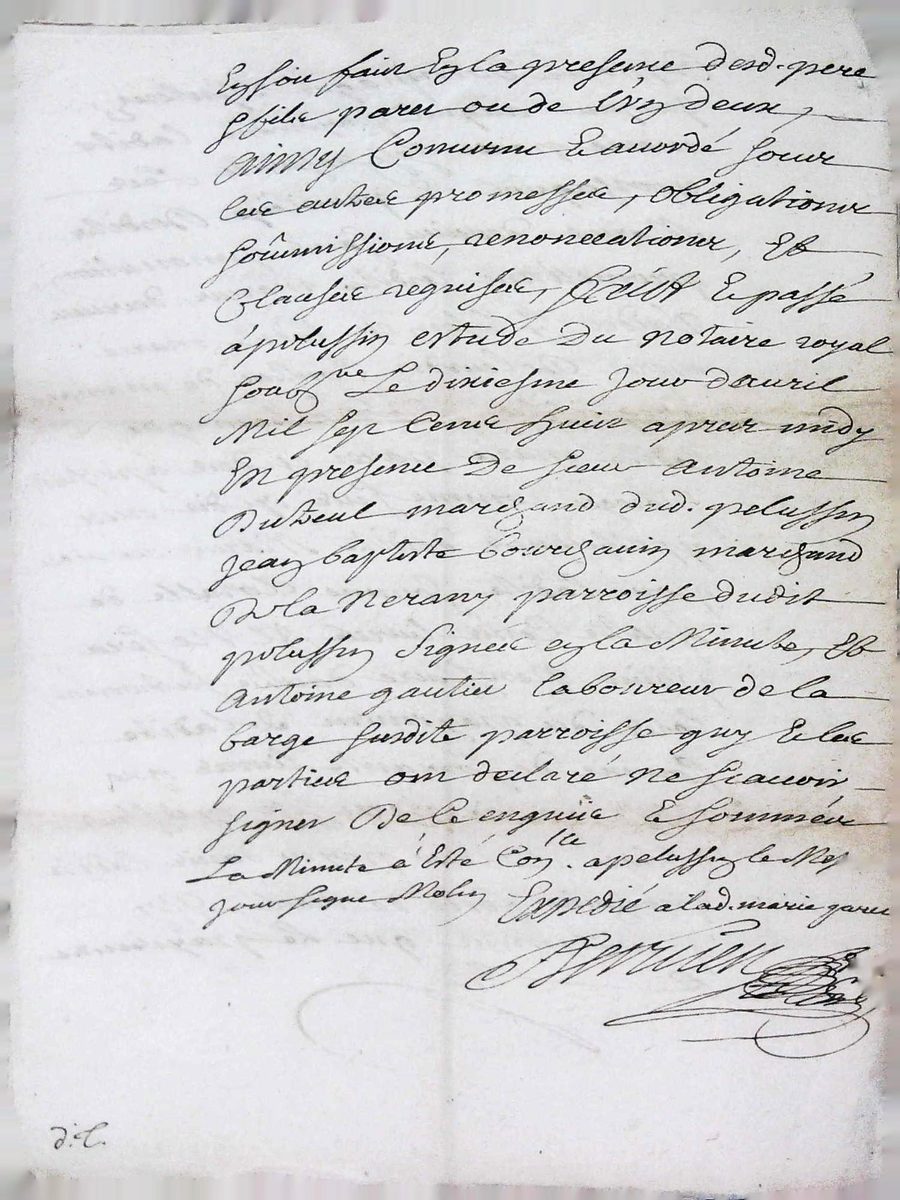 En soit fait En la presence desd. pere
& fils parer ou de l'un deux,
Ainsy Convenu & accordé soubz
les autres promesses, obligations
soumissions, renonciations, Et
Clauses requises, faict & passé
à pelussin estude Du Notaire royal
soubz.né Le dixiesme jour d'auril
Mil sept Cents huit apres midy
En presence De sieur Antoine
Duteul marchand dud. pelussin
jean baptiste bourchanin marchand
De la Nerany parroisse dudit
pelussin Signés en la Minute, Et
Antoine gautier laboureur de la
barge susdite parroisse quy & les
parties ont declaré Ne scauoir
signer De Ce enquis & sommés
La Minute à Esté Con.lée a pelussin le Mes
jour signé Molin Expedié a lad. marie
d. C.